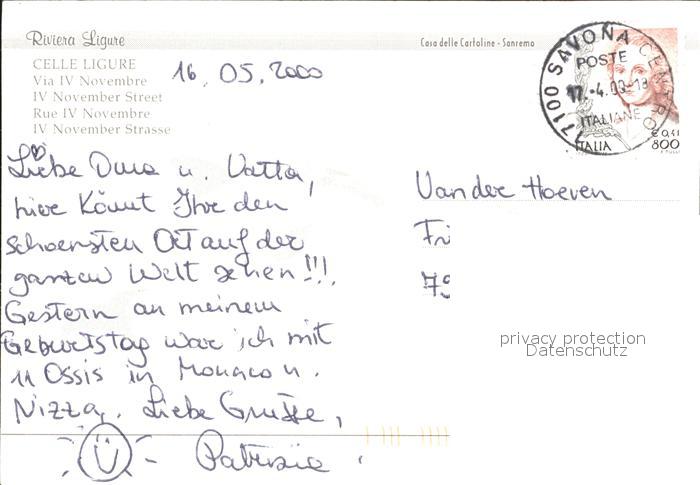 Riviera Ligure
Casa delle Cartoline - Sanremo
CELLE LIGURE
Via IV Novembre
IV November Street
Rue IV Novembre
IV November Strasse
16.05.2000
17100 SAVONA CENTRO
POSTE
ITALIANE
ITALIA
€ 0,41
800
Liebe Oma u. Vatta,
hier könnt Ihr den
schoensten Ort auf der
ganzen Welt sehen!!!
Gestern an meinem
Geburtstag war ich mit
11 Ossis in Monaco u.
Nizza. Liebe Grüße,
Patrizia
Van der Hoeven
Fri
79
privacy protection
Datenschutz